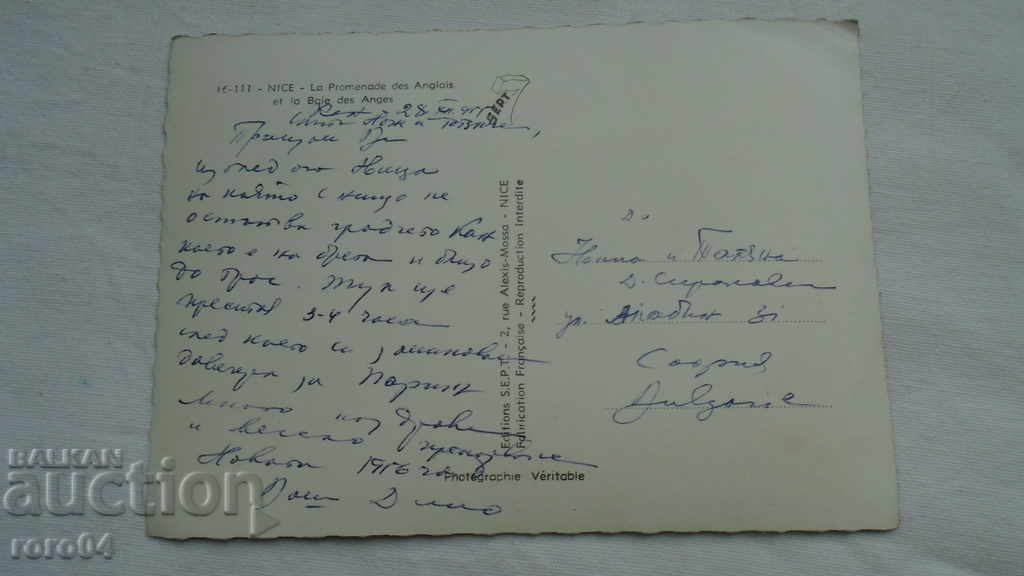 16-111 - NICE - La Promenade des Anglais
et la Baie des Anges
SEPT
28 XII
Пращам Ви
изглед от Ница
на която с нищо не
отстъпва градчето Кан
което е на брега и близо
до Грас. Тук ще
престоя 3-4 часа
след което си заминавам
довечера за Париж
Много поздрави
и весело прекарване
Новата 1956 год
Ваш Димо
Editions S.E.P.T. - 2, rue Alexis-Mossa - NICE
Fabrication Française - Reproduction Interdite
Photographie Véritable
До
и
Д.
ул. 31
София
Bulgarie
BALKAN
auction
roro04